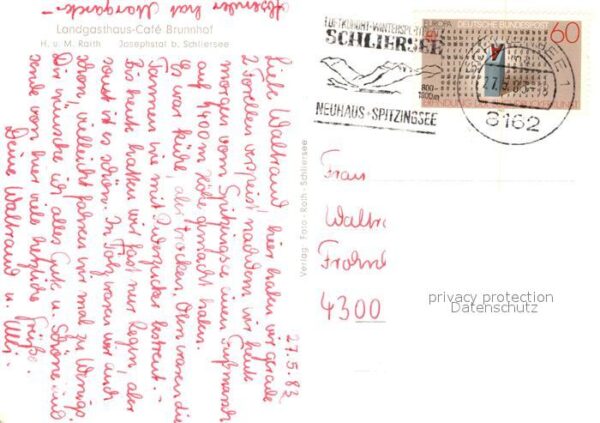 Absender hat
Landgasthaus-Café Brunnhof
H. u. M. Raith Josephstal b. Schliersee
27.5.83
Liebe Waltraud, hier haben wir gerade
2 Forellen verspeist, nachdem wir heute
morgen vom Spitzingsee einen Fußmarsch
auf 1400 m Höhe gemacht haben.
Es war kühl, aber trocken. Oben waren die
Tannen wie mit Puderzucker bestreut.
Bis heute hatten wir fast nur Regen, aber
sonst ist es schön. In Tölz waren wir auch
schon, vielleicht fahren wir mal zu
Dir wünsche ich alles Gute u. Schöne und
sende von hier viele herzliche Grüße.
Deine Waltraud u.
Verlag Foto - Raith - Schliersee
LUFTKURORT-WINTERSPORT
SCHLIERSEE
800-
NEUHAUS + SPITZINGSEE
SCHLIERSEE 1
27.5.83
8162
EUROPA
DEUTSCHE BUNDESPOST
60
Frau
Waltr
4300
privacy protection
Datenschutz